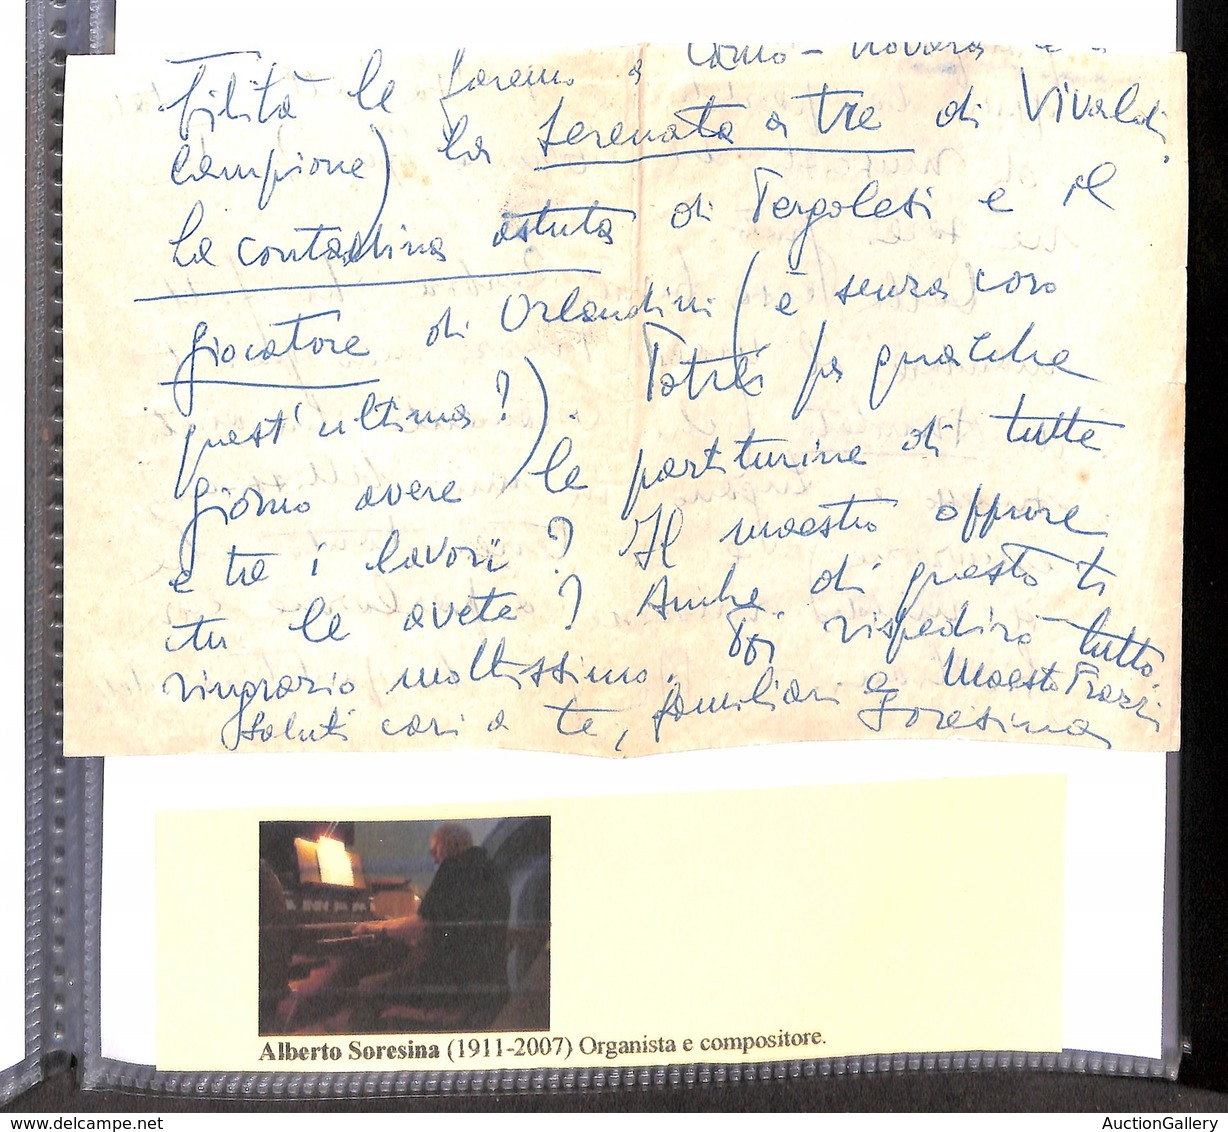 bilità le faremo a Como - Novara e
Campione) la Serenata a tre di Vivaldi,
La contadina astuta di Pergolesi e il
giocatore di Orlandini (è senza coro
quest'ultima?). Potrei fra qualche
giorno avere le partiturine di tutte
e tre i lavori? Il maestro oppure
tu le avete? Anche di questo ti
ringrazio moltissimo. Poi rispedirò tutto.
Saluti cari a te, familiari e Maestro Frazzi
Soresina
Alberto Soresina (1911-2007) Organista e compositore.
AuctionGallery